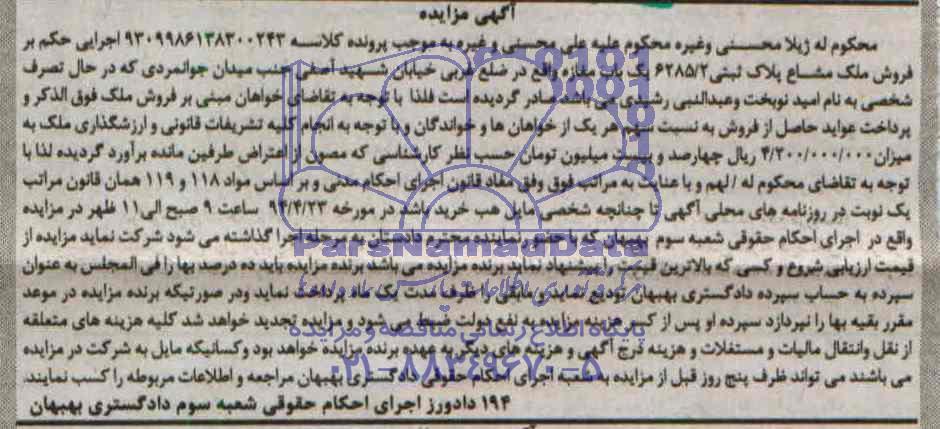 آگهی مزایده
محکوم له ژیلا محسنی وغیره محکوم علیه علی محسنی و غیره به موجب پرونده کلاسه ۹۳۰۹۹۸۶۱۳۸۳۰۰۲۴۳ اجرایی حکم بر
فروش ملک مشاع پلاک ثبتی ۶۲۸۵/۲ یک باب مغازه واقع در ضلع غربی خیابان شهید آصفی جنب میدان جوانمردی که در حال تصرف
شخصی به نام امید نوبخت وعبدالنبی رشیدی می باشد صادر گردیده است فلذا با توجه به تقاضای خواهان مبنی بر فروش ملک فوق الذکر و
پرداخت عواید حاصل از فروش به نسبت سهم هر یک از خواهان ها و خواندگان و با توجه به انجام کلیه تشریفات قانونی و ارزشگذاری ملک به
میزان ۴/۲۰۰/۰۰۰/۰۰۰ ریال چهارصد و بیست میلیون تومان حسب نظر کارشناسی که مصون از اعتراض طرفین مانده برآورد گردیده لذا با
توجه به تقاضای محکوم له / لهم و با عنایت به مراتب فوق وفق مفاد قانون اجرای احکام مدنی و بر اساس مواد ۱۱۸ و ۱۱۹ همان قانون مراتب
یک نوبت در روزنامه های محلی آگهی تا چنانچه شخصی مایل هب خرید باشد در مورخه ۹۴/۴/۲۳ ساعت ۹ صبح الی ۱۱ ظهر در مزایده
واقع در اجرای احکام حقوقی شعبه سوم بهبهان که با حضور نماینده محترم دادستان به مرحله اجرا گذاشته می شود شرکت نماید مزایده از
قیمت ارزیابی شروع و کسی که بالاترین قیمت را پیشنهاد نماید برنده مزایده می باشد برنده مزایده باید ده درصد بها را فی المجلس به عنوان
سپرده به حساب سپرده دادگستری بهبهان تودیع نماید و مابقی را ظرف مدت یک ماه پرداخت نماید ودر صورتیکه برنده مزایده در موعد
مقرر بقیه بها را نپردازد سپرده او پس از کسر هزینه مزایده به نفع دولت ضبط می شود و مزایده تجدید خواهد شد کلیه هزینه های متعلقه
از نقل وانتقال مالیات و مستغلات و هزینه درج آگهی و هزینه های دیگر به عهده برنده مزایده خواهد بود وکسانیکه مایل به شرکت در مزایده
می باشند می تواند ظرف پنج روز قبل از مزایده به شعبه اجرای احکام حقوقی دادگستری بهبهان مراجعه و اطلاعات مربوطه را کسب نمایند.
۱۹۴ دادورز اجرای احکام حقوقی شعبه سوم دادگستری بهبهان
ParsNamadData
پایگاه اطلاع رسانی مناقصه و مزایده
۰۲۱-۸۸۳۴۹۶۷۰-۵